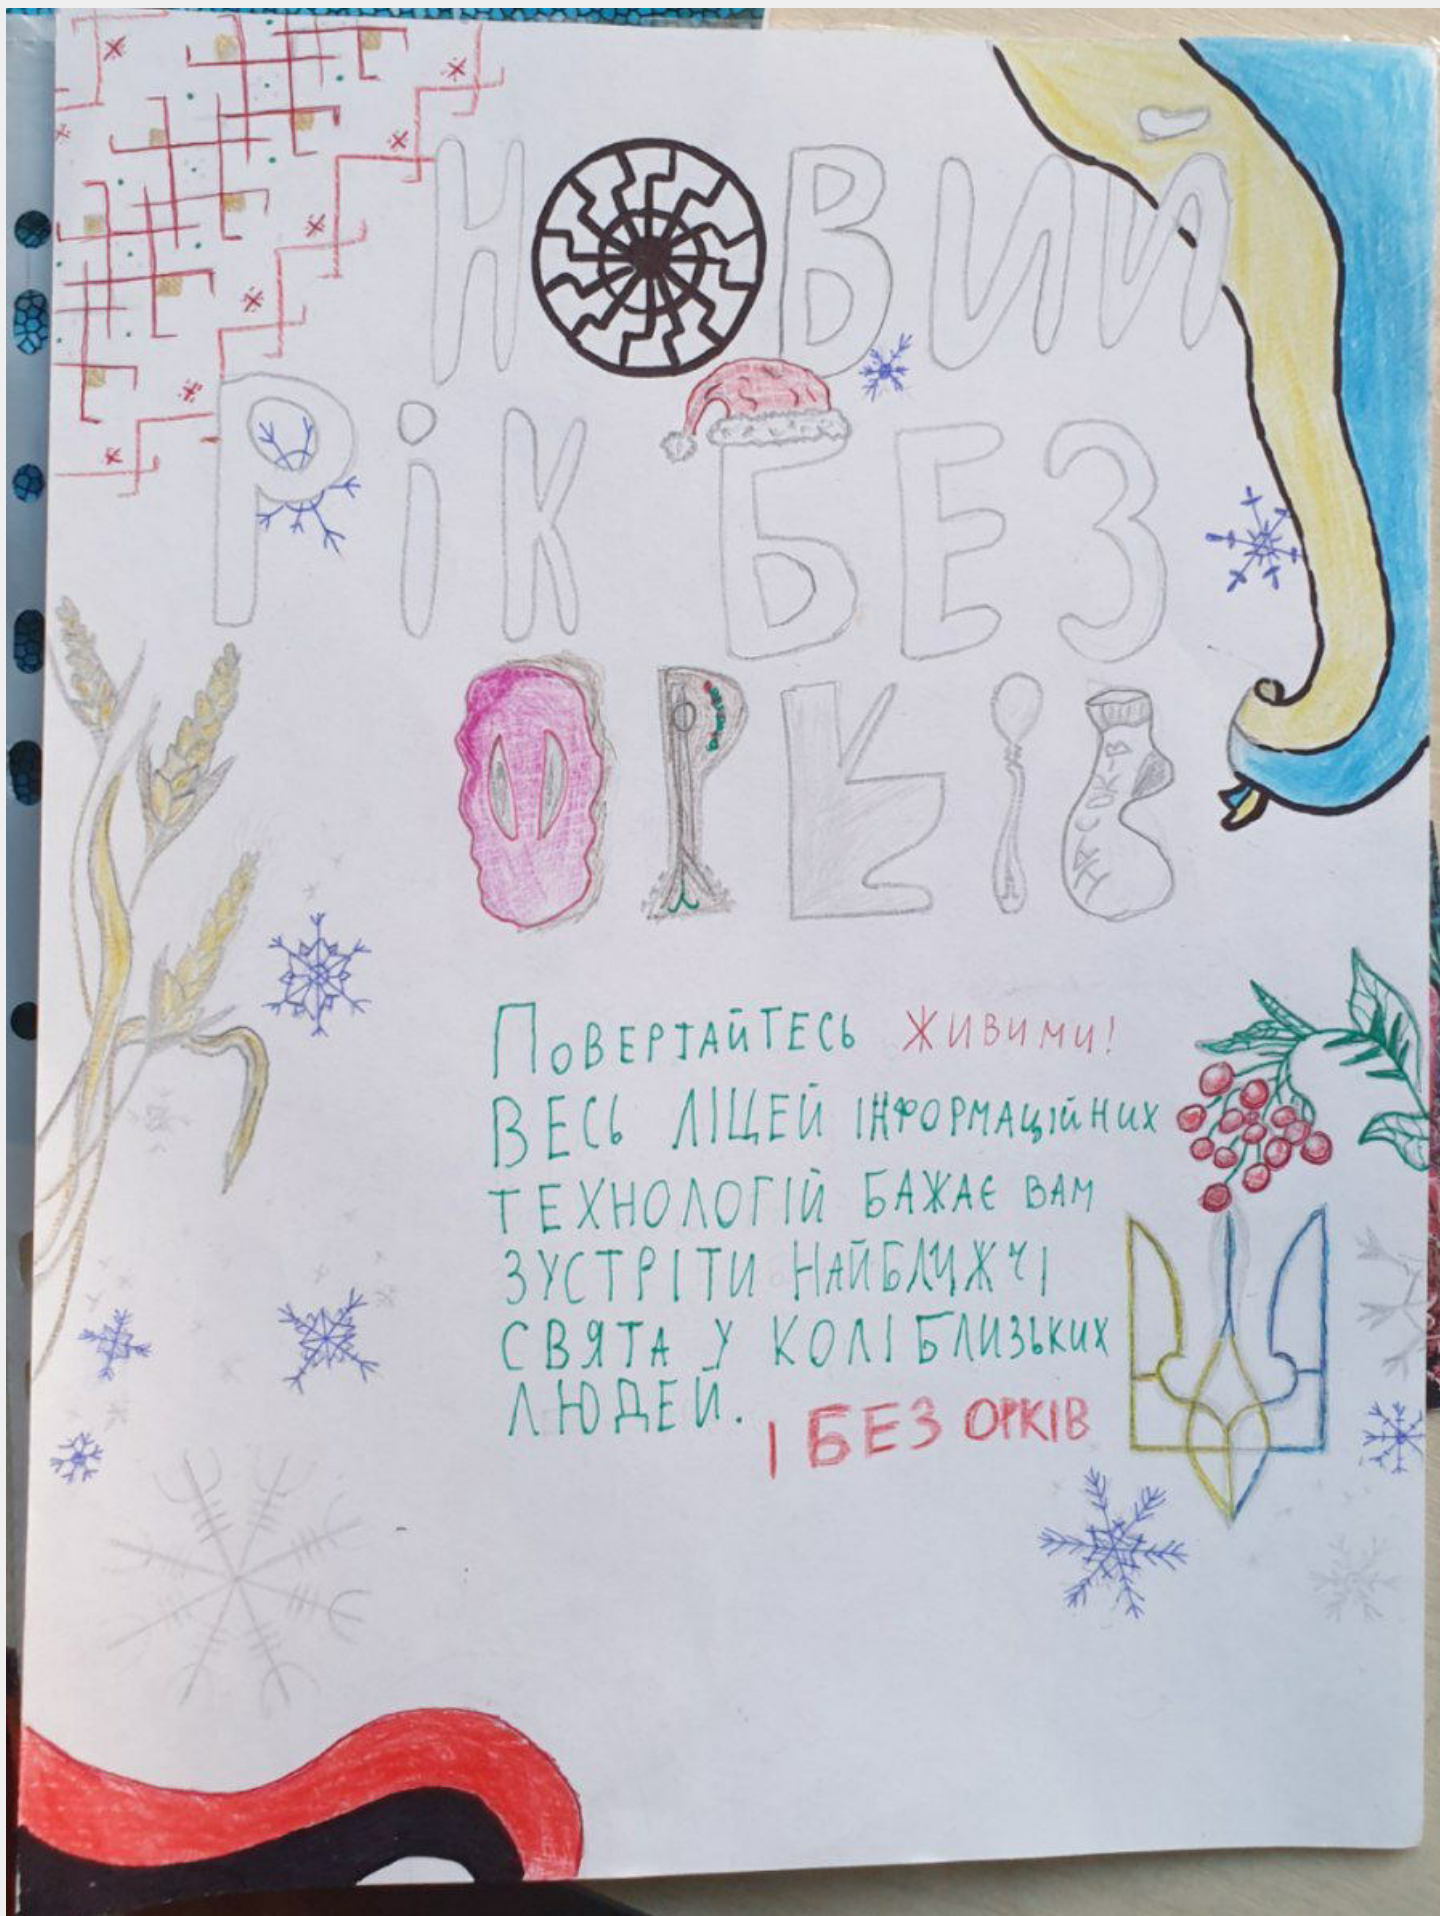 НОВИЙ
РіК БЕЗ
ОРКІВ
ПОВЕРТАЙТЕСЬ ЖИВИМИ!
ВЕСЬ ЛІЦЕЙ ІНФОРМАЦІЙНИХ
ТЕХНОЛОГІЙ БАЖАЄ ВАМ
ЗУСТРІТИ НАЙБЛИЖЧІ
СВЯТА У КОЛІ БЛИЗЬКИХ
ЛЮДЕЙ.
І БЕЗ ОРКІВ